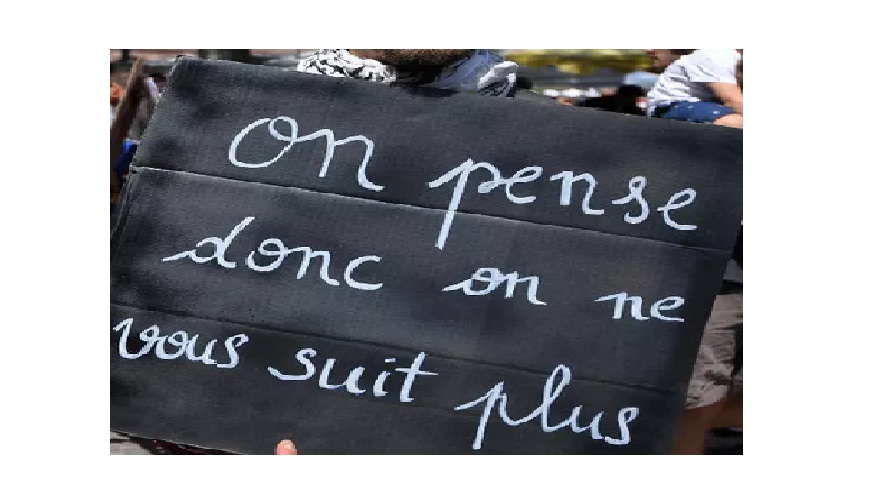 On pense
donc on ne
vous suit plus